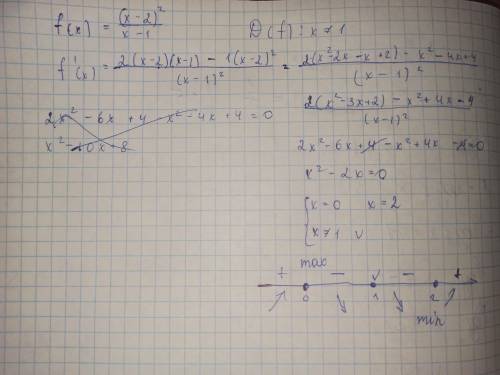 f(x) = (x-2)² / x-1    D(f): x ≠ 1
f'(x) = 2(x-2)(x-1) - 1(x-2)² / (x-1)² = 2(x²-2x-x+2) - x²-4x+4 / (x-1)²
2(x²-3x+2) - x²+4x-4 / (x-1)²
2x² - 6x + 4 x² - 4x + 4 = 0
x² - 10x + 8
2x² - 6x + 4 - x² + 4x - 4 = 0
x² - 2x = 0
{ x = 0    x = 2
x ≠ 1
+ max - v - +
0 1 2
min